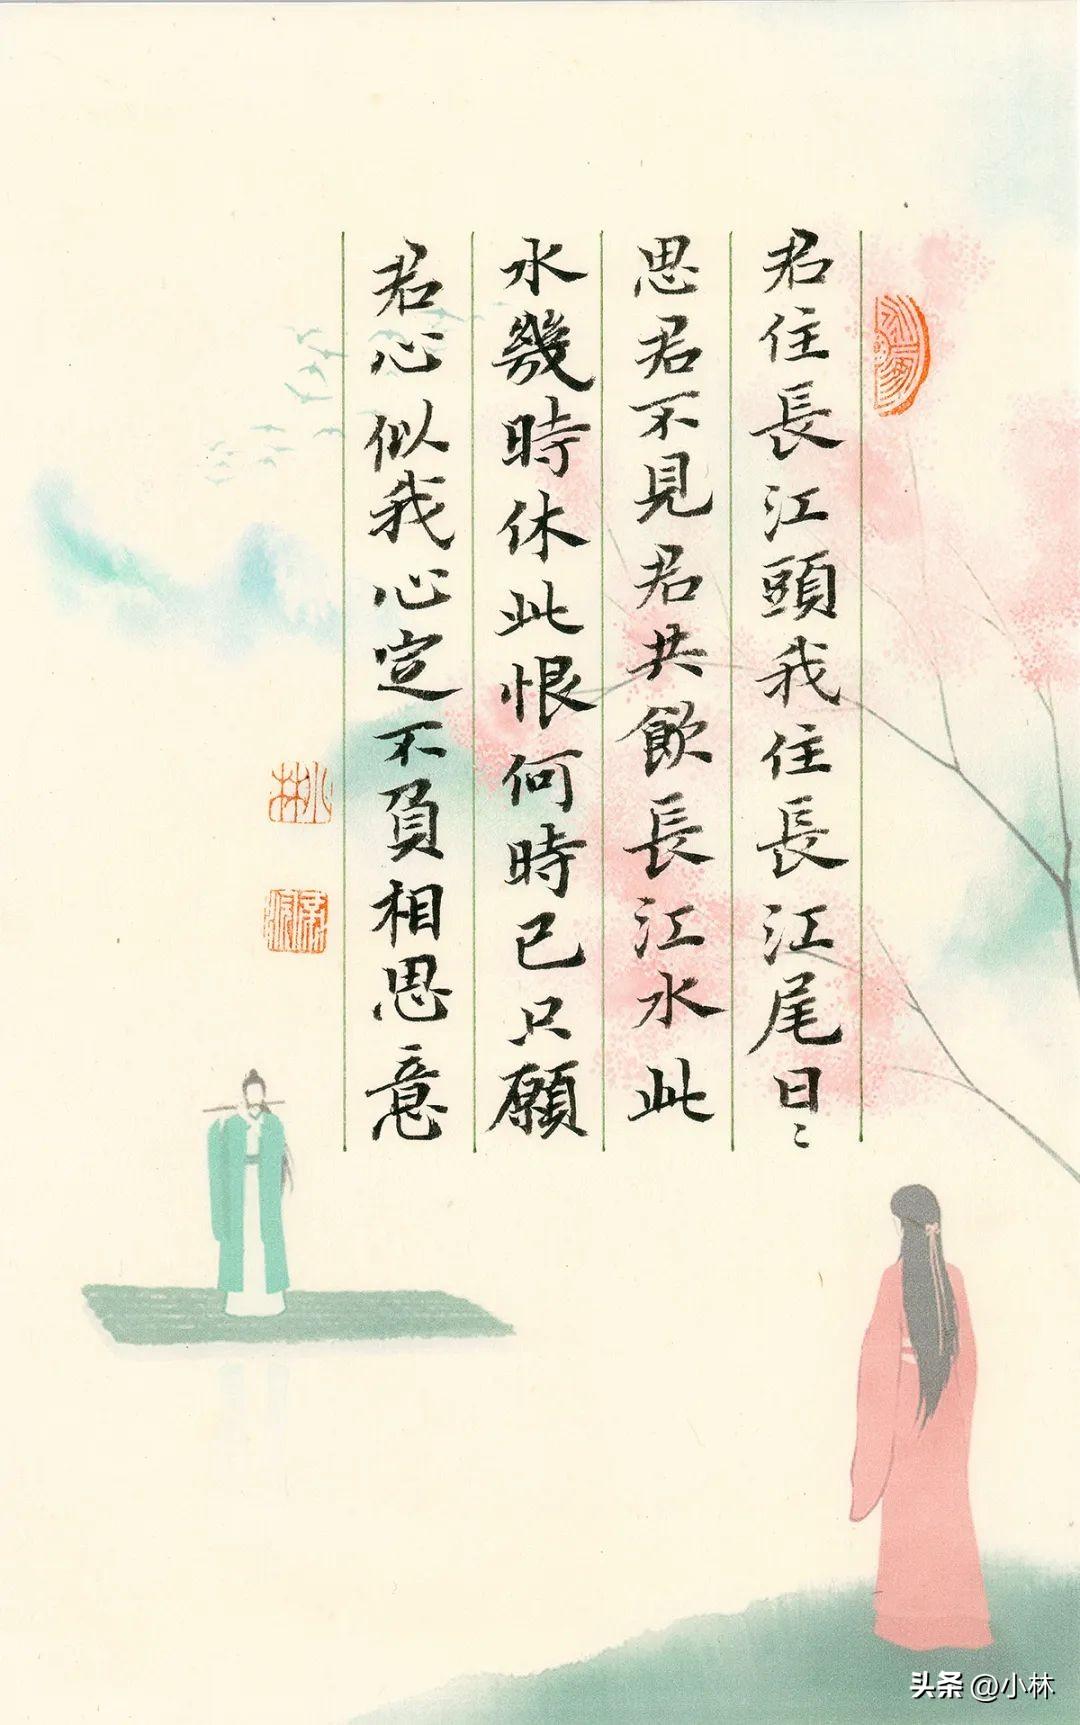 君住長江頭我住長江尾日〻
思君不見君共飲長江水此
水幾時休此恨何時已只願
君心似我心定不負相思意
小林
头条 @小林